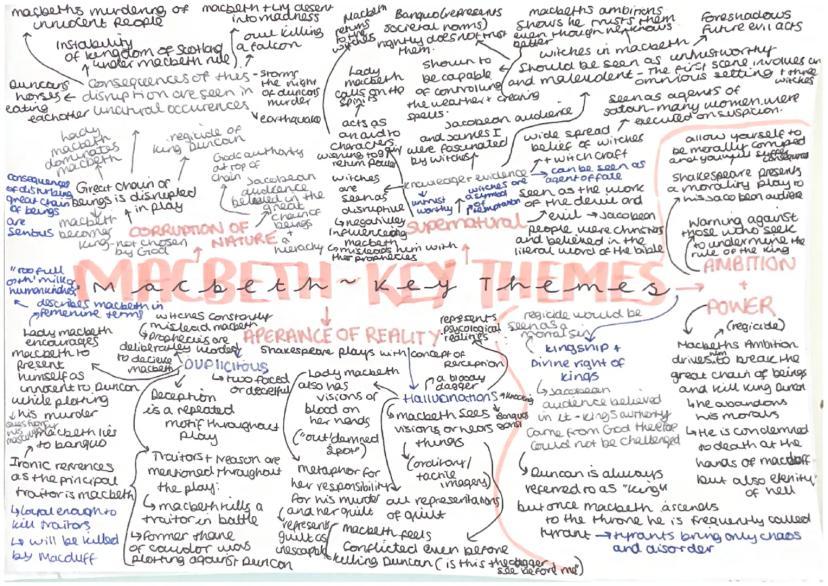 macbeths murdering of
innocent people
macbeth tiny descent
into madness
owl killing
a falcon
Instability
of kingdom of scotland
under macbeth rule
Duncans
horses
eating
eachother
Consequences of this
disruption are seen in
unatural occurences
- storms
the night
of duncans
murder
earthquake
Lady
macbeth
dominates
macbeth
regicide of
King Duncan
God authority
at top of
chain
Jacobean
audience
believed in the
great
chain of
beings
+
hierachy
Great chain of
beings is disrupted
in play
consequences
of disturbing
great chain
of beings
are
serious
macbeth
becomes
King - not chosen
by God
CORRUPTION OF
NATURE
Macbeth
returns
to the
witches
Banquo (represents
societal norms)
rightly does not trust
them.
Lady
macbeth
calls on the
spirits
shown to
be capable
of controlling
the weather + creating
spells.
acts as
an aid to
characters
wanting to gain
return power
Jacobean audience
and James I
were fascinated
by witches
witches
are
seen as
disruptive
negatively
influencing
macbeth
misleads him with
the prophecies
knowledge evidence
untrust
worthy
witches are
a symbol
of temptation
supernatural
macbeths ambitions
shows he trusts them
even though he knows
better
Foreshadows
future evil acts
witches in macbeth
should be seen as untrustworthy
and malevolent - The first scene involves an
ominous setting + three
witches
seen as agents of
satan - many women were
executed on suspicion.
wide spread
belief of witches
+ witchcraft
can be seen as
agent of fate
seen as the work
of the devil and
evil → Jacobean
people were christians
and believed in the
literal word of the bible
allow yourself to
be morally corrupted
and you will suffer
consequences
Shakespeare presents
a morality play to
his Jacobean audience
Warning against
those who seek
to undermine the
rule of the king
AMBITION
+
POWER
MACBETH - KEY THEMES
Macbeth ~ Key Themes
"too full
o'th' milk of
human kindness"
describes macbeth in
femenine terms
Lady macbeth
encourages
macbeth to
present
himself as
innocent to Duncan
while plotting
his murder
macbeth lies
to banquo
Ironic refrences
as the principal
traitor is macbeth
↳ Loyal enough to
kill traitors
↳ will be killed
by Macduff
witches constantly
mislead macbeth
Prophecies are
deliberately worded
to decieve
macbeth
DUPLICITOUS
↳ two faced
or deceitful
Deception
is a repeated
motif throughout
play
Traitors + treason are
mentioned throughout
the play:
↳ macbeth kills a
traitor in battle
↳ Former thane
of cawdor was
plotting against Duncan
APERANCE OF REALITY
Shakespeare plays with concept of
perception
Lady macbeth
also has
visions of
blood on
her hands
("out damned
spot")
metaphor for
her responsibility
for his murder
and her guilt
represents
guilt as
inescapable
represents
psycological
feelings
a bloody
dagger
Hallucinations
↳ macbeth sees
visions or hears
things
Banquo
(auditory/
tactile
imagery)
all representations
of guilt
macbeth feels
conflicted even before
killing Duncan (is this the dagger
see before me)
regicide would be
seen as a
mortal sin
kingship +
Divine right of
kings
↳ Jacobean
audience believed
in it - kings authority
came from God therefore
could not be challenged
Duncan is always
referred to as "King"
but once macbeth ascends
to the throne he is frequently called
tyrant → tyrants bring only chaos
and disorder
(regicide)
Macbeths Ambition
drives him to break the
great chain of beings
and kill King Duncan
↳ he abandons
his morals
↳ He is condemned
to death at the
hands of macduff
but also eternity
of hell